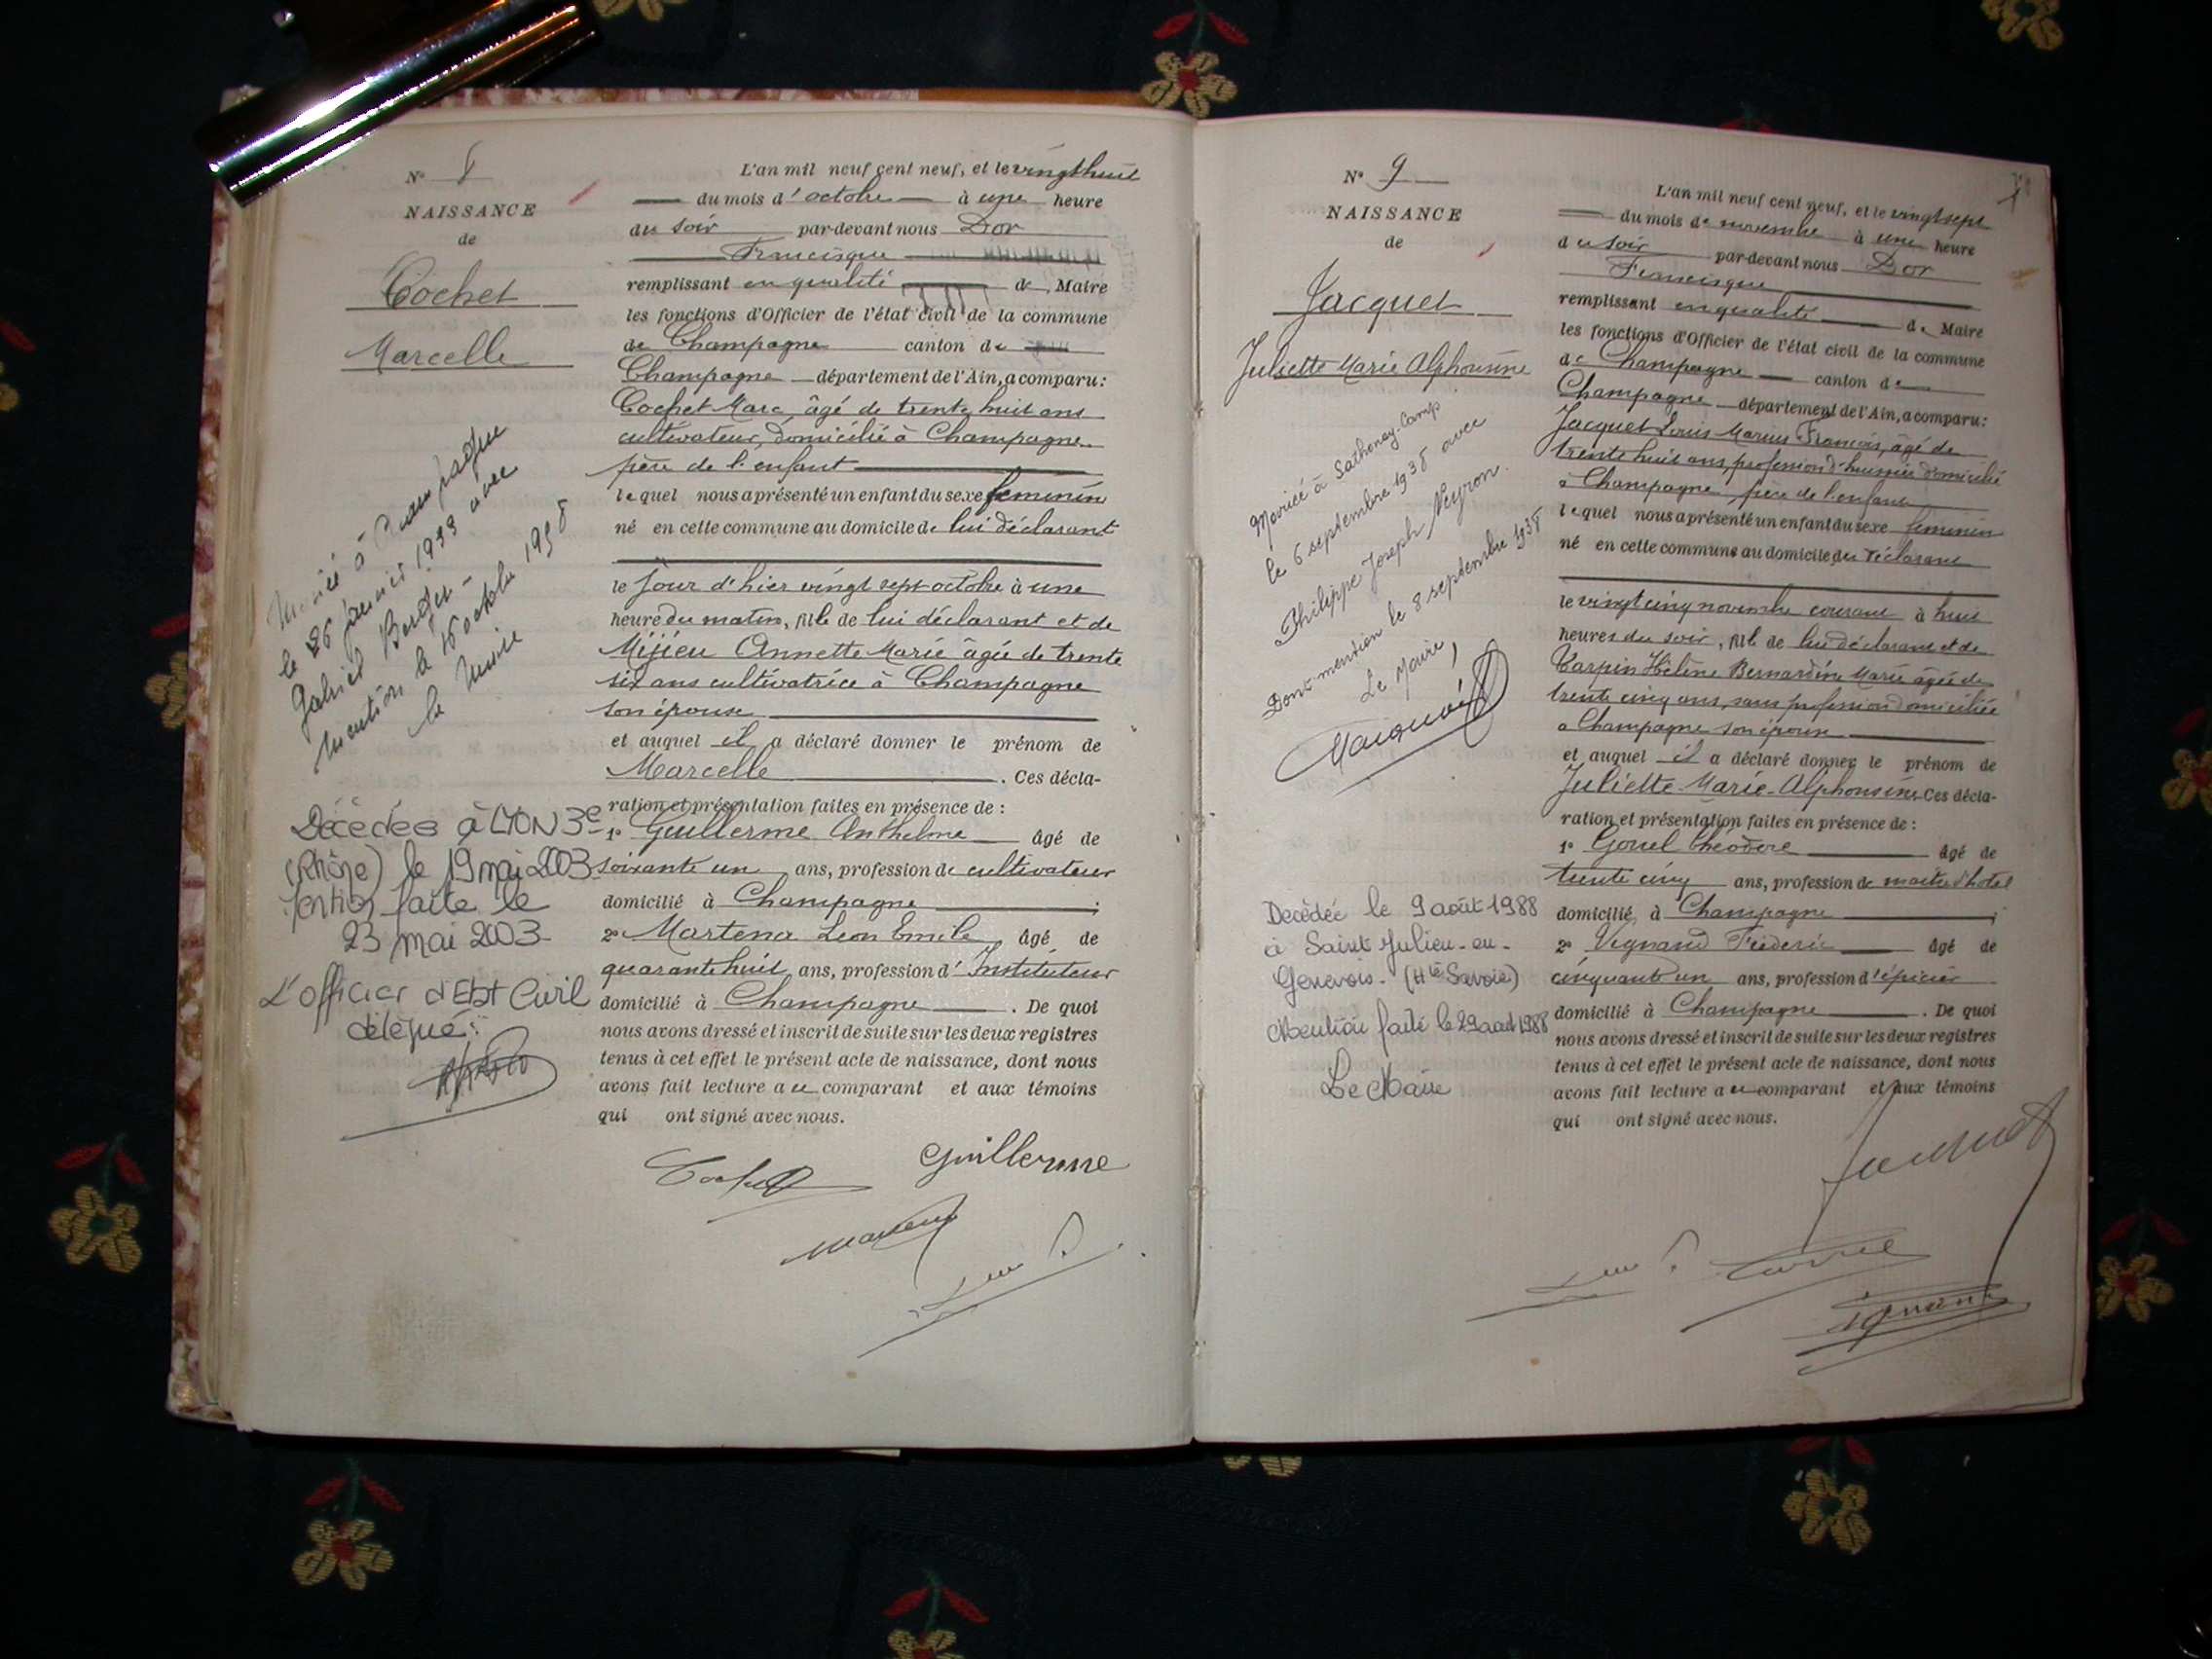 N° 8
NAISSANCE
de
Cochet
Marcelle
L'an mil neuf cent neuf, et le vingt huit
du mois d'octobre à une heure
du soir par-devant nous Dor
Francisque
remplissant en qualité de Maire
les fonctions d'Officier de l'état civil de la commune
de Champagne canton de
Champagne département de l'Ain, a comparu:
Cochet Marc, âgé de trente huit ans
cultivateur, domicilié à Champagne
père de l'enfant
lequel nous a présenté un enfant du sexe féminin
né en cette commune au domicile de lui déclarant
le jour d'hier vingt sept octobre à une
heure du matin, fille de lui déclarant et de
Mijieu Annette Marie âgée de trente
six ans cultivatrice à Champagne
son épouse
et auquel il a déclaré donner le prénom de
Marcelle. Ces décla-
ration et présentation faites en présence de :
1° Guillerme Anthelme âgé de
soixante un ans, profession de cultivateur
domicilié à Champagne ;
2° Martena Leon Emile âgé de
quarante huit ans, profession d'Instituteur
domicilié à Champagne. De quoi
nous avons dressé et inscrit de suite sur les deux registres
tenus à cet effet le présent acte de naissance, dont nous
avons fait lecture au comparant et aux témoins
qui ont signé avec nous.
le 26 janvier 1933 avec
Gabriel
mention le octobre 1958
le Maire
Décédée à LYON 3e
(Rhône) le 19 mai 2003
mention faite le
23 mai 2003
L'officier d'Etat Civil
délégué:
Cochet
Guillerme
Martena
N° 9
NAISSANCE
de
Jacquet
Juliette Marie Alphonsine
L'an mil neuf cent neuf, et le vingt sept
du mois de novembre à une heure
du soir par-devant nous Dor
Francisque
remplissant en qualité de Maire
les fonctions d'Officier de l'état civil de la commune
de Champagne canton de
Champagne département de l'Ain, a comparu:
Jacquet Louis Marius François, âgé de
trente huit ans, profession d'huissier domicilié
à Champagne père de l'enfant
lequel nous a présenté un enfant du sexe féminin
né en cette commune au domicile du déclarant
le vingt cinq novembre courant à huit
heures du soir, fille de lui déclarant et de
Carpin Hélène Bernardine Marie âgée de
trente cinq ans, sans profession domiciliée
a Champagne son épouse
et auquel il a déclaré donner le prénom de
Juliette-Marie-Alphonsine. Ces décla-
ration et présentation faites en présence de :
1° Gouel Théodore âgé de
trente cinq ans, profession de maître d'hotel
domicilié à Champagne ;
2° Vignand Frédéric âgé de
cinquante un ans, profession d'épicier
domicilié à Champagne. De quoi
nous avons dressé et inscrit de suite sur les deux registres
tenus à cet effet le présent acte de naissance, dont nous
avons fait lecture au comparant et aux témoins
qui ont signé avec nous.
Mariée à Sathonay-Camp
le 6 septembre 1938 avec
Philippe Joseph Neyron.
Dont mention le 8 septembre 1938
Le Maire,
Décédée le 9 août 1988
à Saint Julien-en-
Genevois. (Hte Savoie)
Mention faite le 29 août 1988
Le Maire
Jacquet